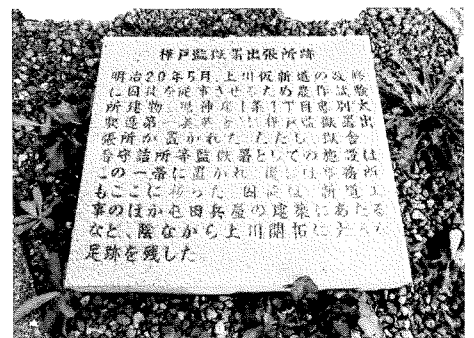 樺戸監獄署出張所跡
明治20年5月、上川仮新道の改修
に囚徒を従事させるため農作試験
所建物 神居1条1丁目忠別太
駅逓第一 に樺戸監獄署出
張所が置かれた ただし、獄舎
看守詰所等監獄署としての施設は
この一帯に置かれ、後には事務所
もここに移った 囚徒は、新道工
事のほか屯田兵屋の建築にあたる
など、陰ながら上川開拓に
足跡を残した